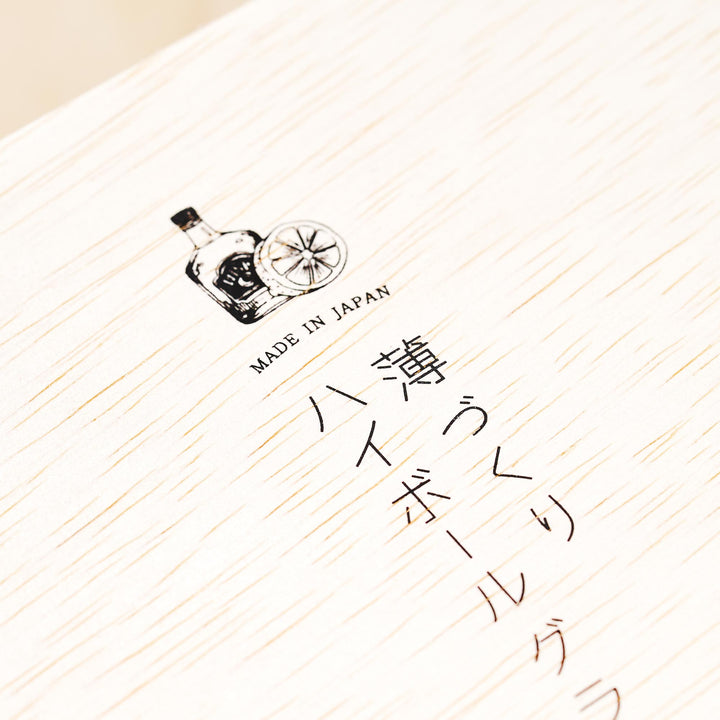 MADE IN JAPAN
薄づくり
ハイボールグラ